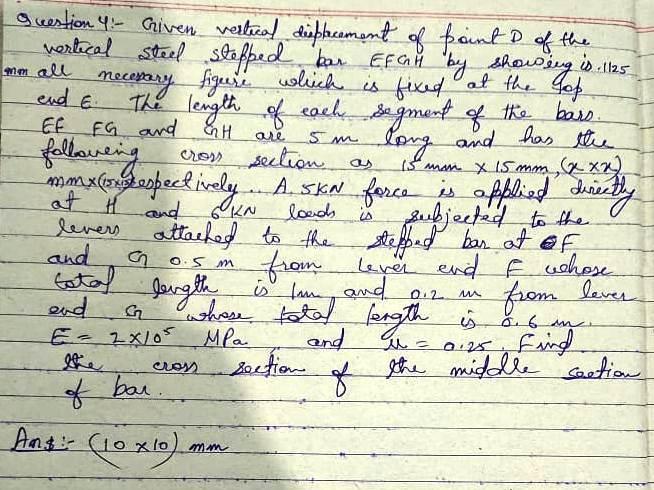 Question 4:- Given vertical displacement of point D of the
vertical steel stepped bar EFGH by showing is .1125
mm all necessary figure which is fixed at the top
end E. The length of each segment of the bars.
EF FG and GH are 5 m long and has the
following cross section as 15 mm x 15 mm, (x x x)
mm x (15x15) respectively.. A. 5KN force is applied directly
at H and 6 KN loads is subjected to the
levers attached to the stepped bar at F
and G 0.5 m from lever end F whose
total length is 1m and 0.2 m from lever
end G whose total length is 0.6 m.
E = 2x10⁵ MPa and μ = 0.25. Find
the cross section of the middle section
of bar.
Ans:- (10 x10) mm